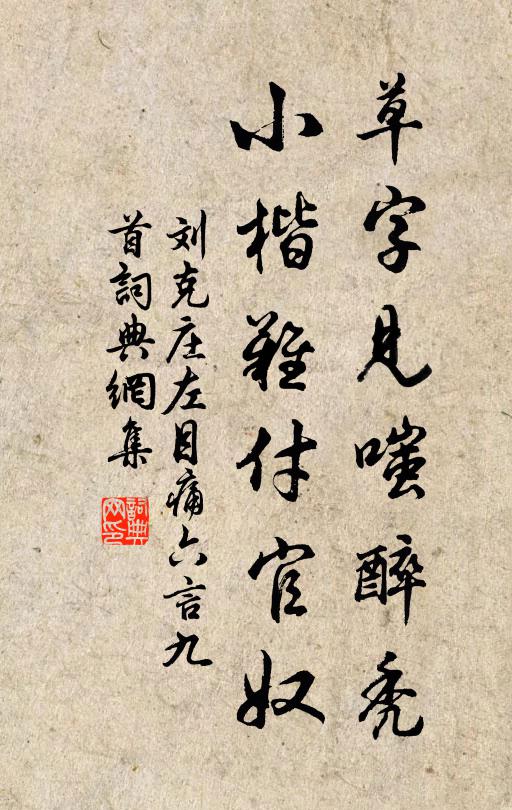 草字見嗤醉禿
小楷難付官奴
刘克庄左目痛六言九
首詞典網集
詞典网印